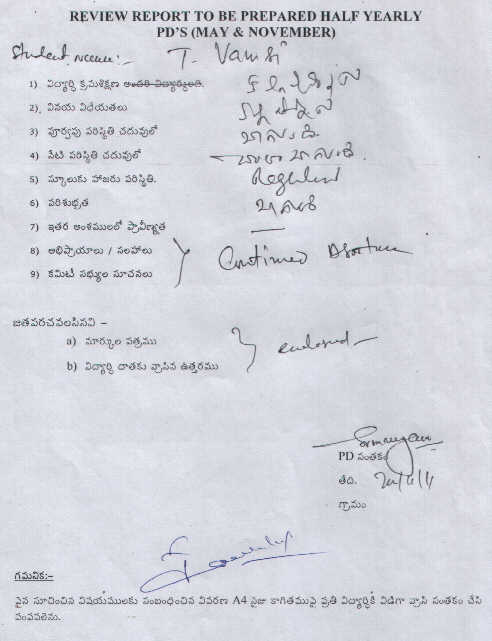 REVIEW REPORT TO BE PREPARED HALF YEARLY
PD'S (MAY & NOVEMBER)
Student name:- T. Vamsi
1) విద్యార్థి క్రమశిక్షణ అందరి విద్యార్థులతో.
2) వినయ విధేయతలు
3) పూర్వపు పరిస్థితి చదువులో బాగుంది.
4) నేటి పరిస్థితి చదువులో చాలా బాగుంది.
5) స్కూలుకు హాజరు పరిస్థితి. Regular
6) పరిశుభ్రత
7) ఇతర అంశములలో ప్రావీణ్యత —
8) అభిప్రాయాలు / సలహాలు
9) కమిటీ సభ్యుల సూచనలు
Continued
జతపరచవలసినవి –
a) మార్కుల పత్రము
b) విద్యార్థి దాతకు వ్రాసిన ఉత్తరము
enclosed
PD సంతకం
తేది.
గ్రామం
గమనిక:–
పైన సూచించిన విషయములకు సంబంధించిన వివరణ A4 సైజు కాగితముపై ప్రతి విద్యార్థికి విడిగా వ్రాసి సంతకం చేసి
పంపవలెను.